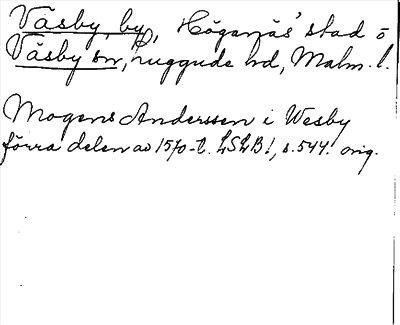 Väsby, by, Höganäs' stad o
Väsby sn, Luggude hd, Malm. l.
Mogens Anderssen i Wesby
förra delen av 1570-t. LSLB1, s. 544. orig.